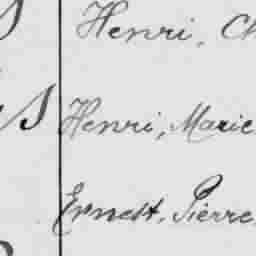 Henri, Ch
Henri, Marie
Ernest, Pierre,